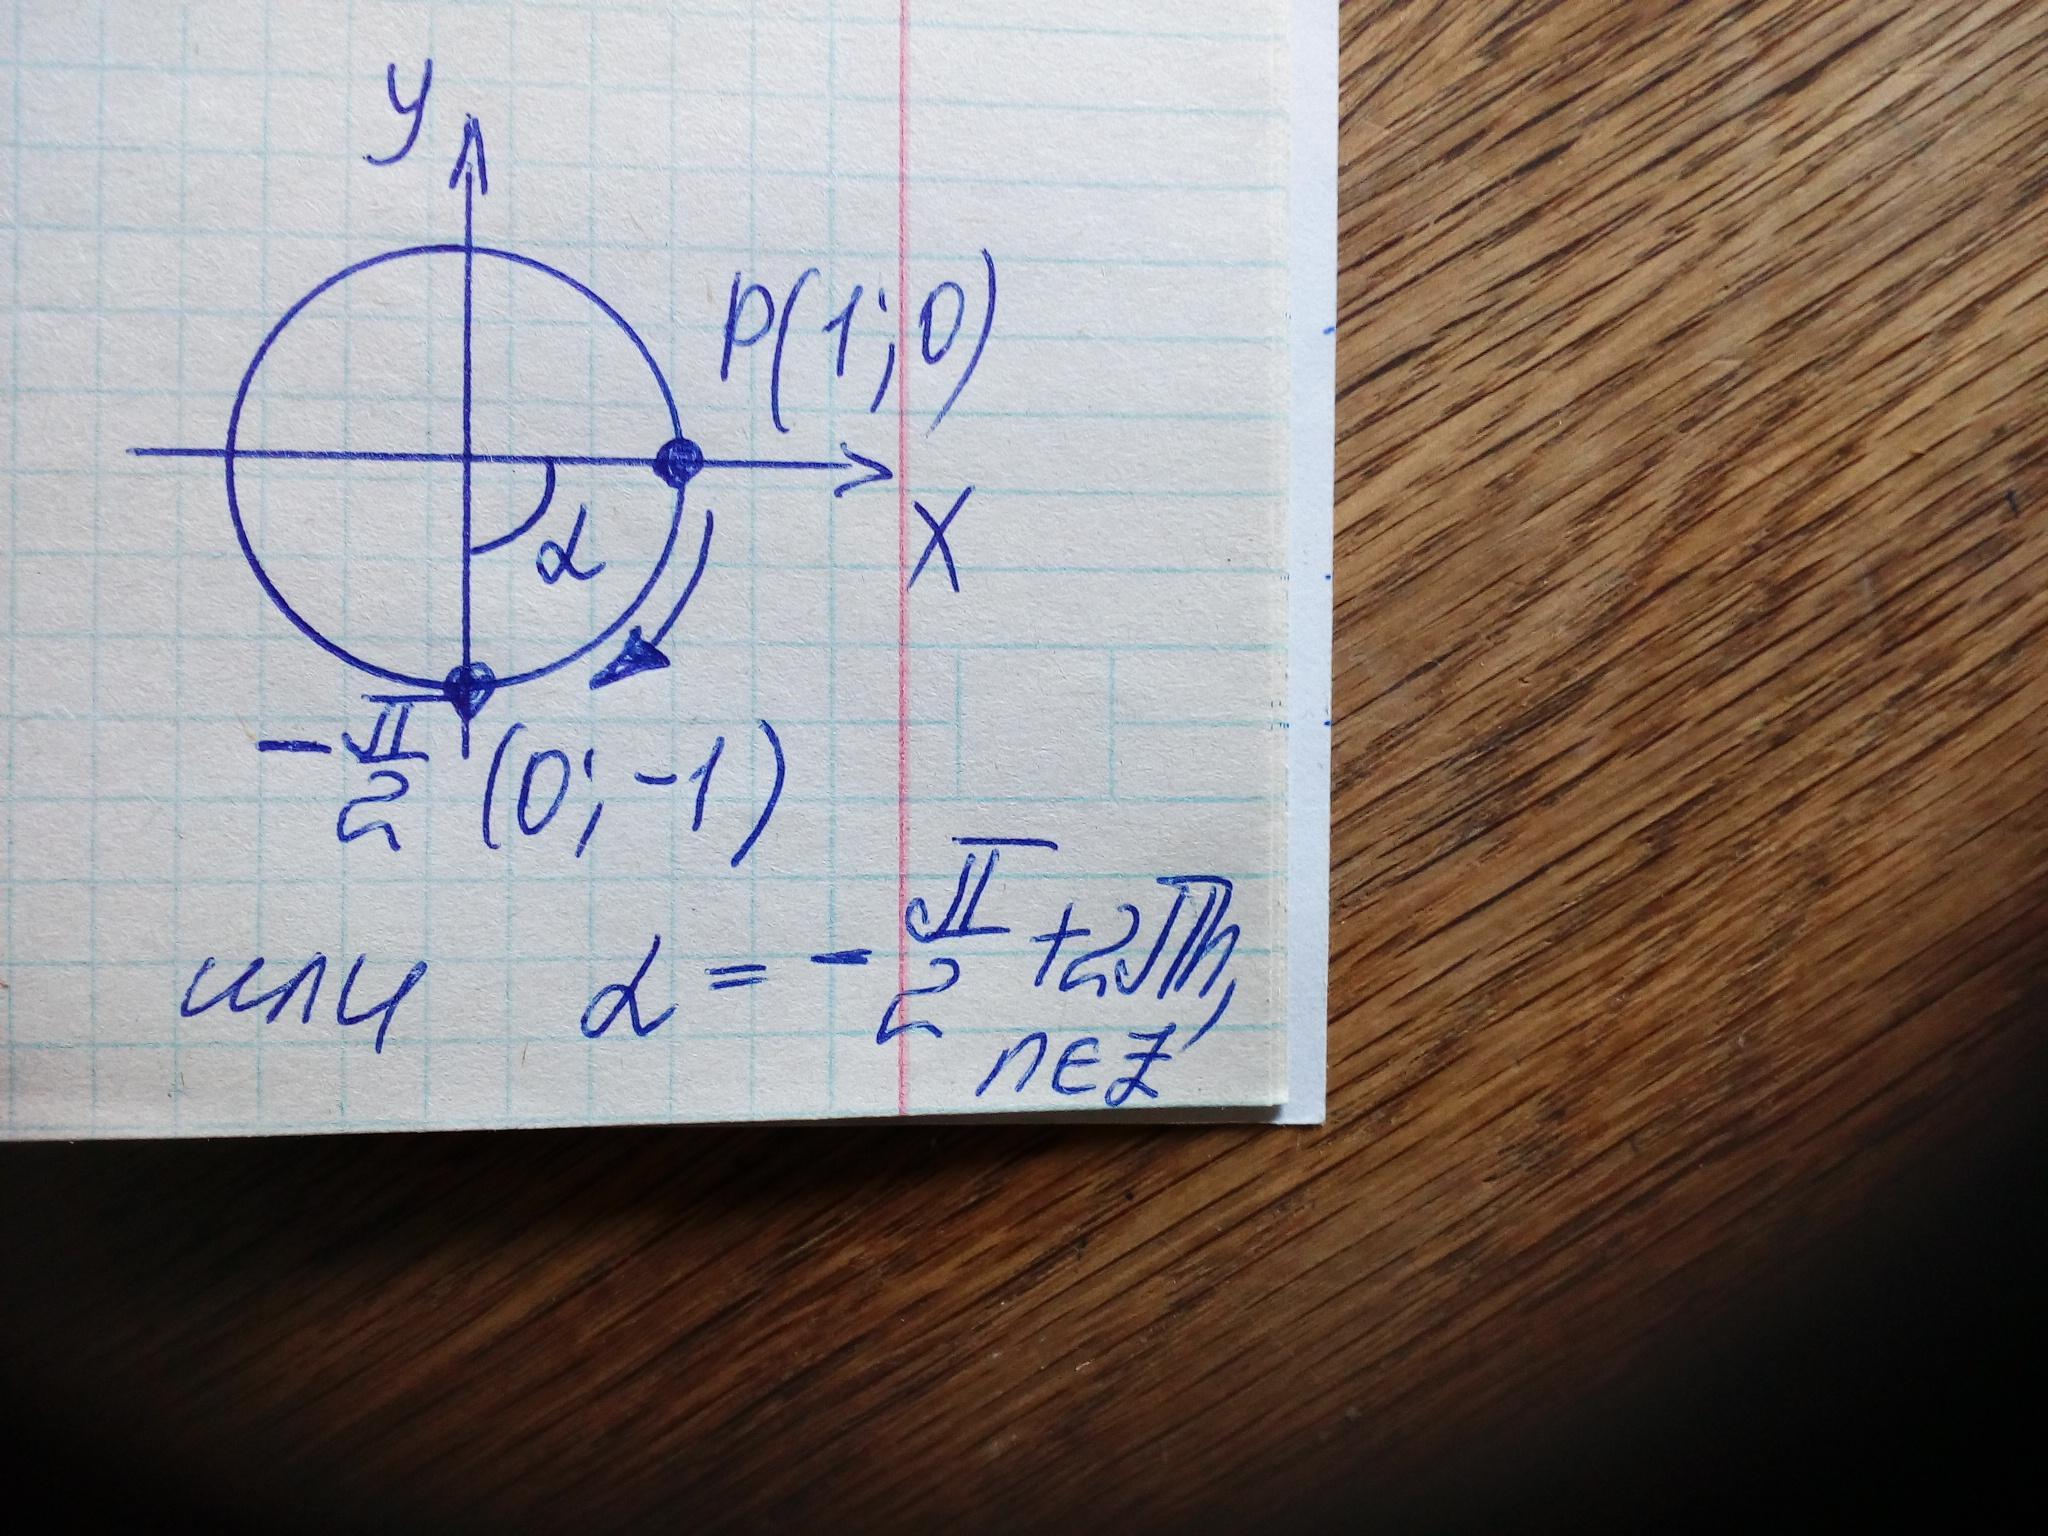 y
P(1;0)
x
α
-π/2 (0;-1)
или α = -π/2 + 2πn,
n∈Z